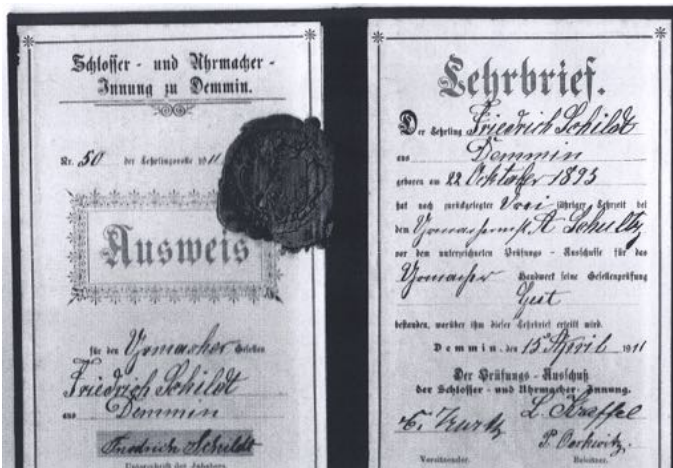 Schlosser- und Uhrmacher-
Innung zu Demmin.
Nr. 50 der Lehrlingsrolle 1911
Ausweis
für den Urmacher Gesellen
Friedrich Schildt
aus Demmin
Friedrich Schildt
Unterschrift des Inhabers.
Lehrbrief.
Der Lehrling Friedrich Schildt
aus Demmin
geboren am 22 Oktober 1893
hat nach zurückgelegter Drei jähriger Lehrzeit bei
dem Urmachermst. A Schultz
vor dem unterzeichneten Prüfungs-Ausschusse für das
Urmacher Handwerk seine Gesellenprüfung
Gut
bestanden, worüber ihm dieser Lehrbrief erteilt wird.
Demmin, den 15 April 1911
Der Prüfungs-Ausschuß
der Schlosser- und Uhrmacher-Innung.
Vorsitzender.
Beisitzer.